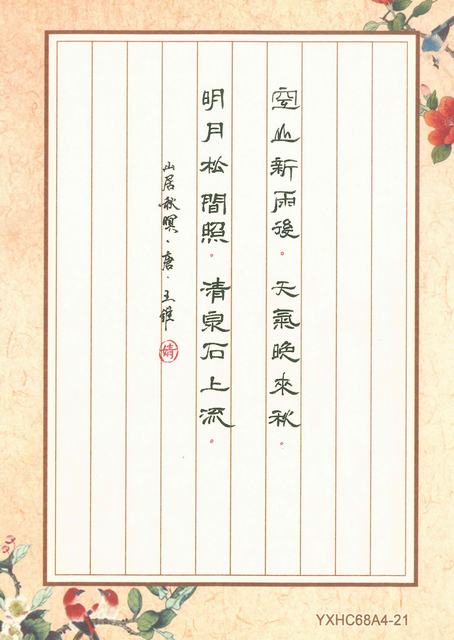 空山新雨後。天氣晚來秋。
明月松間照。清泉石上流。
山居秋暝·唐·王維
婧
YXHC68A4-21